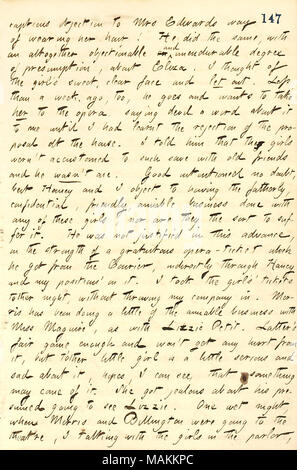 147
captious objection to Mrs Edwards way
of wearing her hair. He, did the same, with
an altogether objectionable and unendurable degree
of presumption, about Eliza. I thought of
the girl's sweet, clear face and let out. Less
than a week, ago, too, he goes and wants to take
her to the opera saying dead a word about it
to me until I had learnt the rejection of the pro-
posal at the house. I told him that the girls
weren't accustomed to such save with old friends
and he wasn't one. Good intentioned no doubt,
but Haney and I object to having the fatherly,
confidential, friendly, amiable business done with
any of these girls nor are they the sort to suf-
fer it. He was not justified in this advance
on the strength of a gratuitous opera-ticket which
he got from the Courier, indirectly through Haney
and my position on it. I took the girls' tickets
tother night, without throwing my company in. Mor-
ris has been doing a little of the amiable business with
Miss Maguire, as with Lizzie Petit. Latter's
fair game enough and won't get any hurt from
it, but tother little girl is a little serious and
sad about it, hopes, I can see, that something
may come of it. She got jealous about his pro-
posed going to see Lizzie. One wet night
when Morris and Billington were going to the
theatre, I talking with the girls in the parlor,
alamy
Image ID: MAKKPC
www.alamy.com